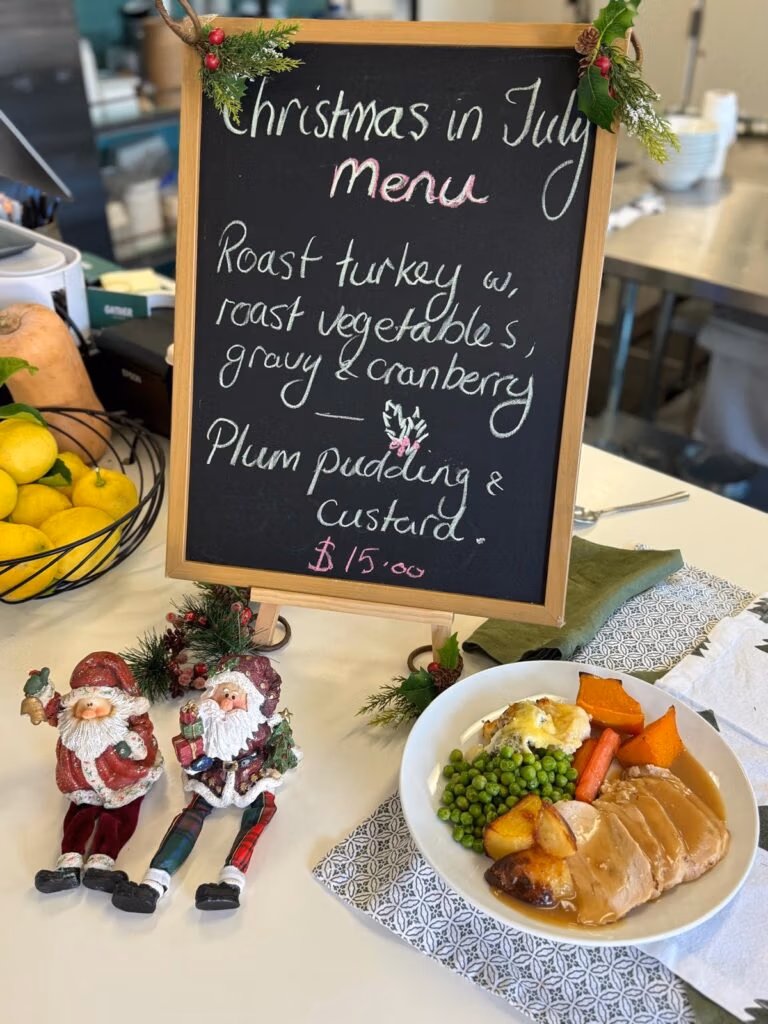 Christmas in July
Menu
Roast turkey w,
roast vegetables,
gravy & cranberry
—
Plum pudding &
custard.
$15.00
GATHER
EPSON